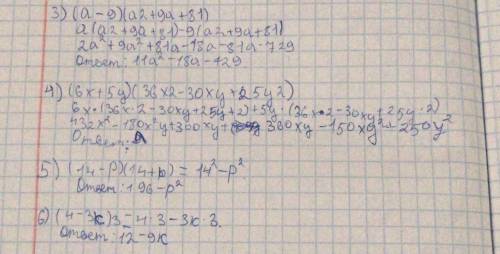 3) (a-9)(a2+9a+81)
a(a2+9a+81)-9(a2+9a+81)
2a²+9a²+81a-18a-81a-729
Ответ: 11a²-18a-729
4) (6x+5y)(36x2-30xy+25y2)
6x·(36x·2-30xy+25y+2)+5y·(36x·2-30xy+25y·2)
432x²-180x²y+300xy+ 360xy-150xy²+250y²
Ответ:
5) (14-p)(14+p)=14²-p²
Ответ: 196-p²
6) (4-3k)3=4·3-3k·3.
Ответ: 12-9k